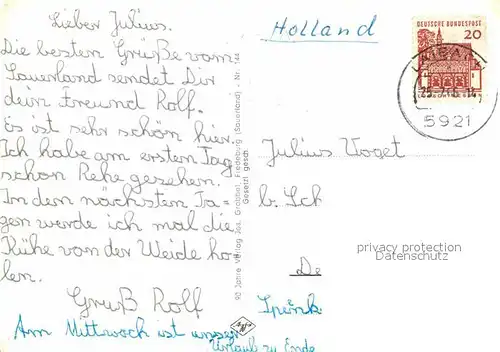 Lieber Julius.
Die besten Grüße vom
Sauerland sendet Dir
dein Freund Rolf.
Es ist sehr schön hier.
Ich habe am ersten Tag
schon Rehe gesehen.
In dem nächsten Ta-
gen werde ich mal die
Kühe von der Weide ho-
len.
Gruß Rolf
Am Mittwoch ist unser
Urlaub zu Ende
90 Jahre Verlag Jos. Grobbel, Fredeburg (Sauerland) - Nr. 144
Gesetzl. gesch.
Holland
DEUTSCHE BUNDESPOST
20
5921
Julius Voget
b. Sch
De
privacy protection
Datenschutz